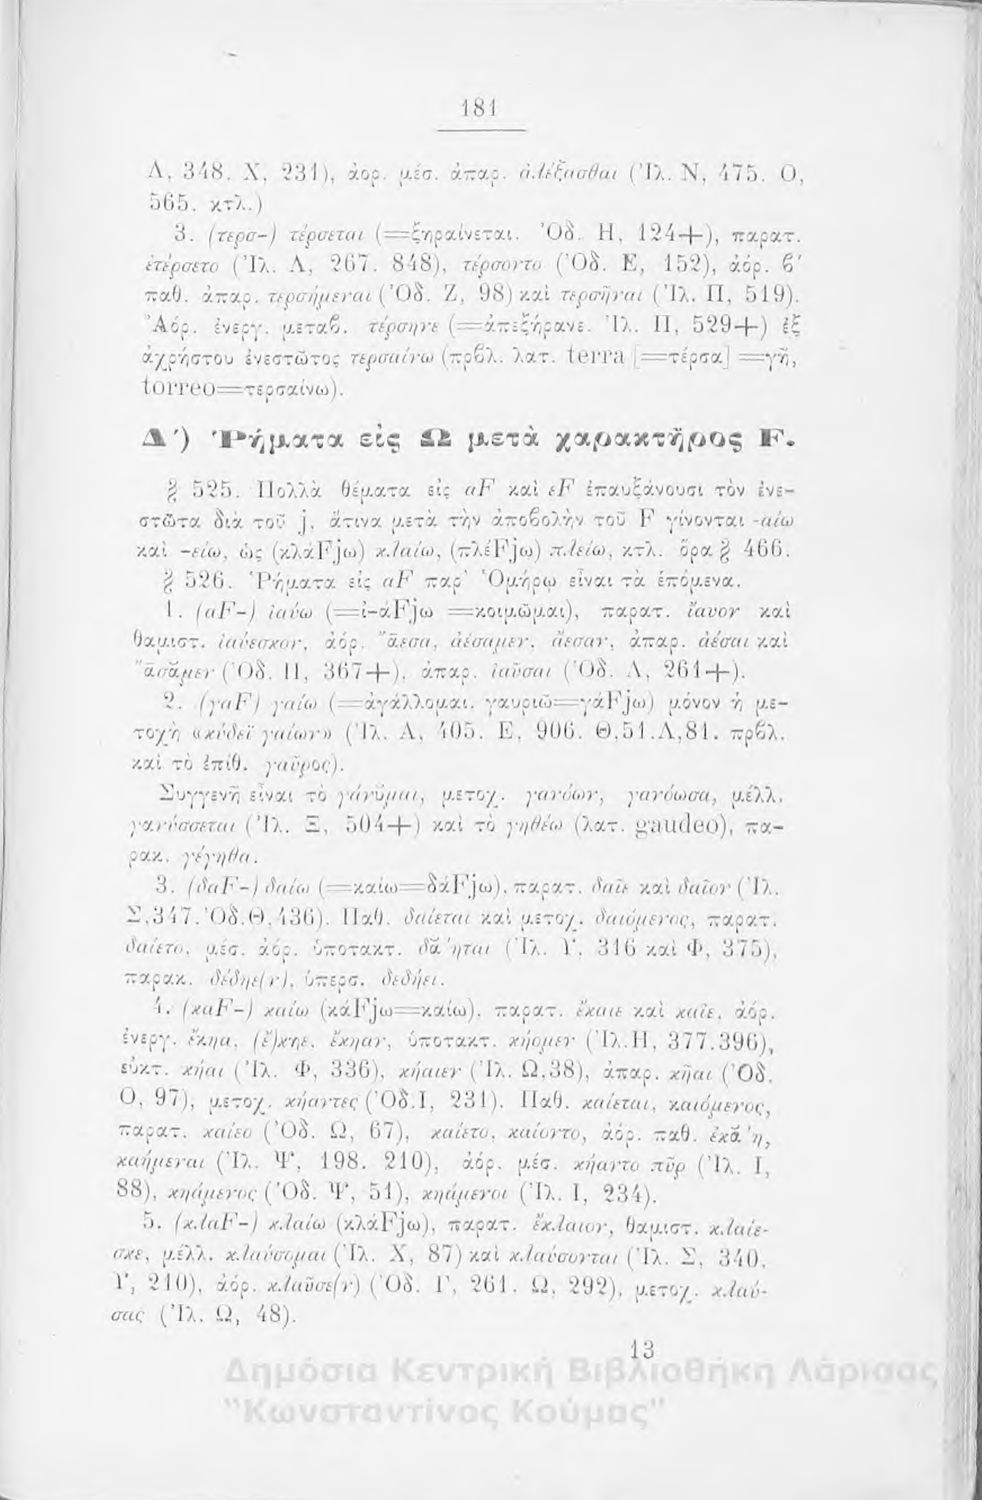 181
Λ, 348. Χ, 231), ἀορ. μέσ. ἀπαρ. ἀλέξασθαι (Ἰλ. Ν, 475. Ο,
565. κτλ.)
3. (τερσ-) τέρσεται (=ξηραίνεται. Ὀδ. Η, 124+), παρατ.
ἐτέρσετο (Ἰλ. Λ, 267. 848), τέρσοντο (Ὀδ. Ε, 152), ἀόρ. ϐ'
παθ. ἀπαρ. τερσήμεναι (Ὀδ. Ζ, 98) καὶ τερσῆναι (Ἰλ. Π, 519).
Ἀόρ. ἐνεργ. μεταϐ. τέρσηνε (=ἀπεξήρανε. Ἰλ. Π, 529+) ἐξ
ἀχρήστου ἐνεστῶτος τερσαίνω (πρϐλ. λατ. terra [=τέρσα] =γῆ,
torreo=τερσαίνω).
Δ') Ῥήματα εἰς Ω μετὰ χαρακτῆρος F.
§ 525. Πολλὰ θέματα εἰς αF καὶ εF ἐπαυξάνουσι τὸν ἐνε-
στῶτα διὰ τοῦ j, ἅτινα μετὰ τὴν ἀποϐολὴν τοῦ F γίνονται -αίω
καὶ -είω, ὡς (κλάFjω) κλαίω, (πλέFjω) πλείω, κτλ. ὅρα § 466.
§ 526. Ῥήματα εἰς αF παρ' Ὁμήρῳ εἶναι τὰ ἑπόμενα.
1. (αF-) ἰαύω (=ἰ-άFjω =κοιμῶμαι), παρατ. ἴαυον καὶ
θαμιστ. ἰαύεσκον, ἀόρ. ἄεσα, ἀέσαμεν, ἄεσαν, ἀπαρ. ἀέσαι καὶ
ἄσαμεν (Ὀδ. Π, 367+), ἀπαρ. ἰαῦσαι (Ὀδ. Λ, 261+).
2. (γαF) γαίω (=ἀγάλλομαι. γαυριῶ=γάFjω) μόνον ἡ με-
τοχὴ «κύδεϊ γαίων» (Ἰλ. Α, 405. Ε, 906. Θ,51.Λ,81. πρϐλ.
καὶ τὸ ἐπίθ. γαῦρος).
Συγγενῆ εἶναι τὸ γάνῠμαι, μετοχ. γανόων, γανόωσα, μέλλ.
γανύσσεται (Ἰλ. Ξ, 504+) καὶ τὸ γηθέω (λατ. gaudeo), πα-
ρακ. γέγηθα.
3. (δαF-) δαίω (=καίω=δάFjω), παρατ. δαῖε καὶ δαῖον (Ἰλ.
Σ,347.Ὀδ.Θ,436). Παθ. δαίεται καὶ μετοχ. δαιόμενος, παρατ.
δαίετο, μέσ. ἀόρ. ὑποτακτ. δά'ηται (Ἰλ. Υ, 316 καὶ Φ, 375),
παρακ. δέδηε(ν), ὑπερσ. δεδήει.
4. (καF-) καίω (κάFjω=καίω), παρατ. ἔκαιε καὶ καῖε, ἀόρ.
ἐνεργ. ἔκηα, (ἔ)κηε, ἔκηαν, ὑποτακτ. κήομεν (Ἰλ.Η, 377.396),
εὐκτ. κήαι (Ἰλ. Φ, 336), κήαιεν (Ἰλ. Ω,38), ἀπαρ. κῆαι (Ὀδ.
Ο, 97), μετοχ. κήαντες (Ὀδ.Ι, 231). Παθ. καίεται, καιόμενος,
παρατ. καίεο (Ὀδ. Ω, 67), καίετο, καίοντο, ἀόρ. παθ. ἐκά'η,
καήμεναι (Ἰλ. Ψ, 198. 210), ἀόρ. μέσ. κήαντο πῦρ (Ἰλ. Ι,
88), κηάμενος (Ὀδ. Ψ, 51), κηάμενοι (Ἰλ. Ι, 234).
5. (κλαF-) κλαίω (κλάFjω), παρατ. ἔκλαιον, θαμιστ. κλαίε-
σκε, μέλλ. κλαύσομαι (Ἰλ. Χ, 87) καὶ κλαύσονται (Ἰλ. Σ, 340.
Υ, 210), ἀόρ. κλαῦσε(ν) (Ὀδ. Γ, 261. Ω, 292), μετοχ. κλαύ-
σας (Ἰλ. Ω, 48).
13
Δημόσια Κεντρική Βιβλιοθήκη Λάρισας
"Κωνσταντίνος Κούμας"